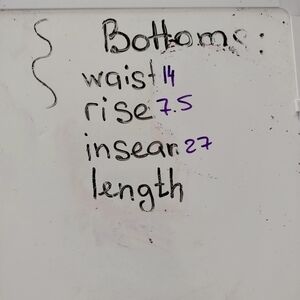 Bottoms:
waist 14
rise 7.5
inseam 27
length